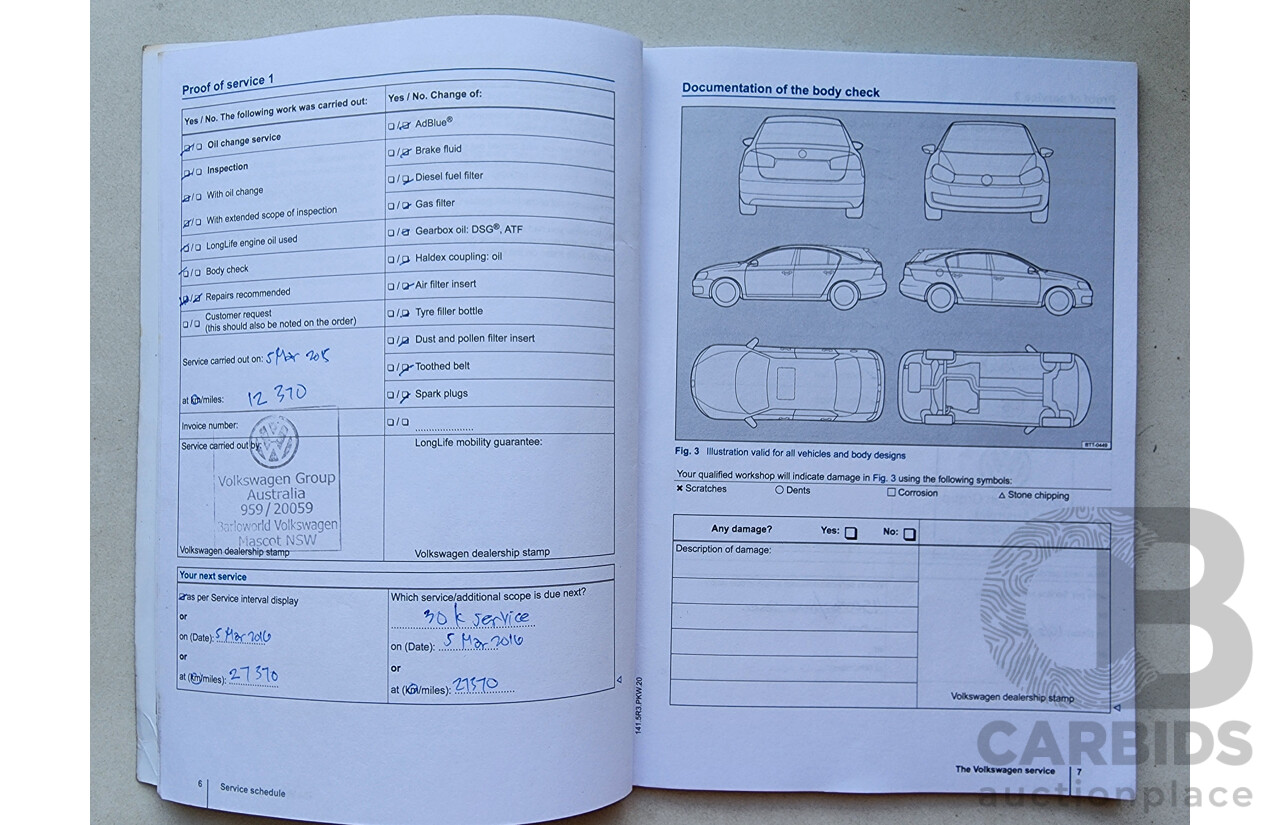 Proof of service 1
Yes / No. The following work was carried out:
Oil change service
Inspection
With oil change
With extended scope of inspection
LongLife engine oil used
Body check
Repairs recommended
Customer request
(this should also be noted on the order)
Service carried out on: 5 Mar 2015
at km/miles: 12 370
Invoice number:
Service carried out by:
Volkswagen Group
Australia
959 / 20059
Barloworld Volkswagen
Mascot NSW
Volkswagen dealership stamp
Yes / No. Change of:
AdBlue®
Brake fluid
Diesel fuel filter
Gas filter
Gearbox oil: DSG®, ATF
Haldex coupling: oil
Air filter insert
Tyre filler bottle
Dust and pollen filter insert
Toothed belt
Spark plugs
LongLife mobility guarantee:
Volkswagen dealership stamp
Your next service
as per Service interval display
or
on (Date): 5 Mar 2016
or
at (km/miles): 27 370
Which service/additional scope is due next?
30 k service
on (Date): 5 Mar 2016
or
at (km/miles): 27370
141.5R3.PKW.20
6 Service schedule
Documentation of the body check
BTT-0448
Fig. 3 Illustration valid for all vehicles and body designs
Your qualified workshop will indicate damage in Fig. 3 using the following symbols:
Scratches Dents Corrosion Stone chipping
Any damage? Yes: No:
Description of damage:
Volkswagen dealership stamp
The Volkswagen service 7
CARBIDS
auctionplace